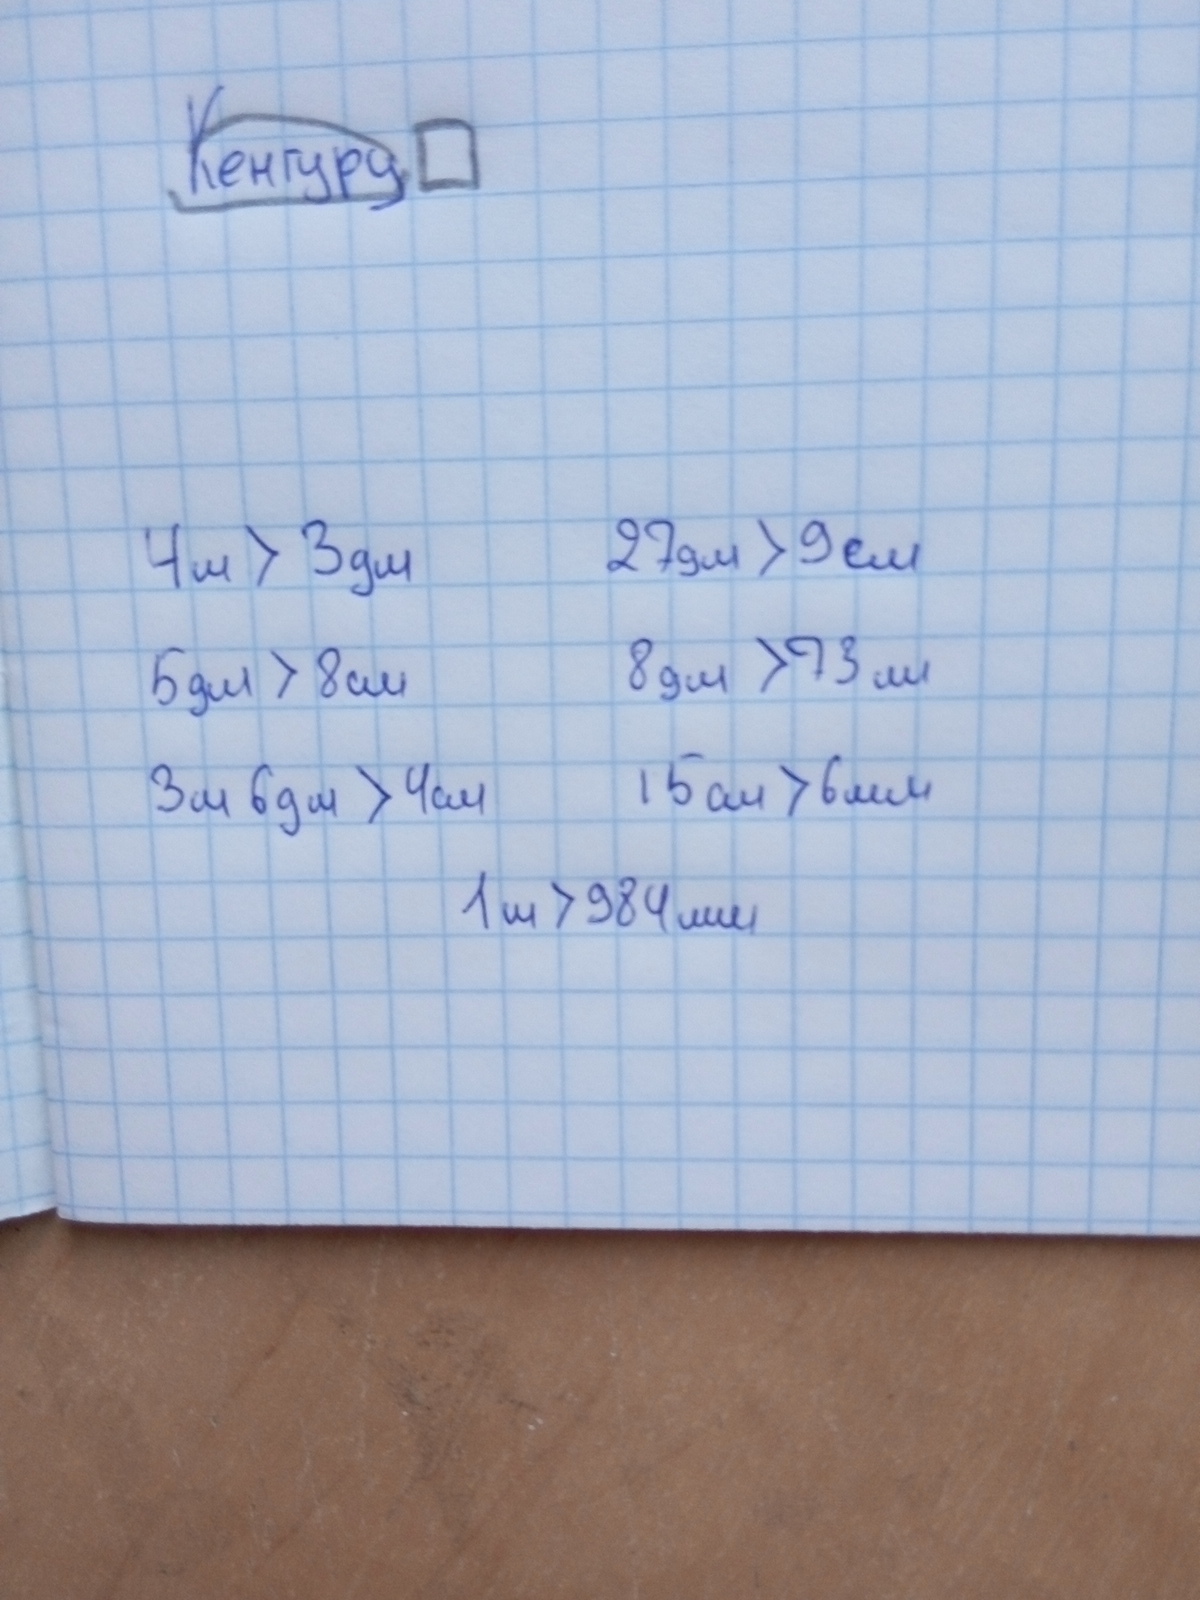 Кенгуру
4м > 3дм 27дм > 9см
5дм > 8см 8дм > 73 м
3м 6дм > 4см 15см > 6мм
1м > 984мм